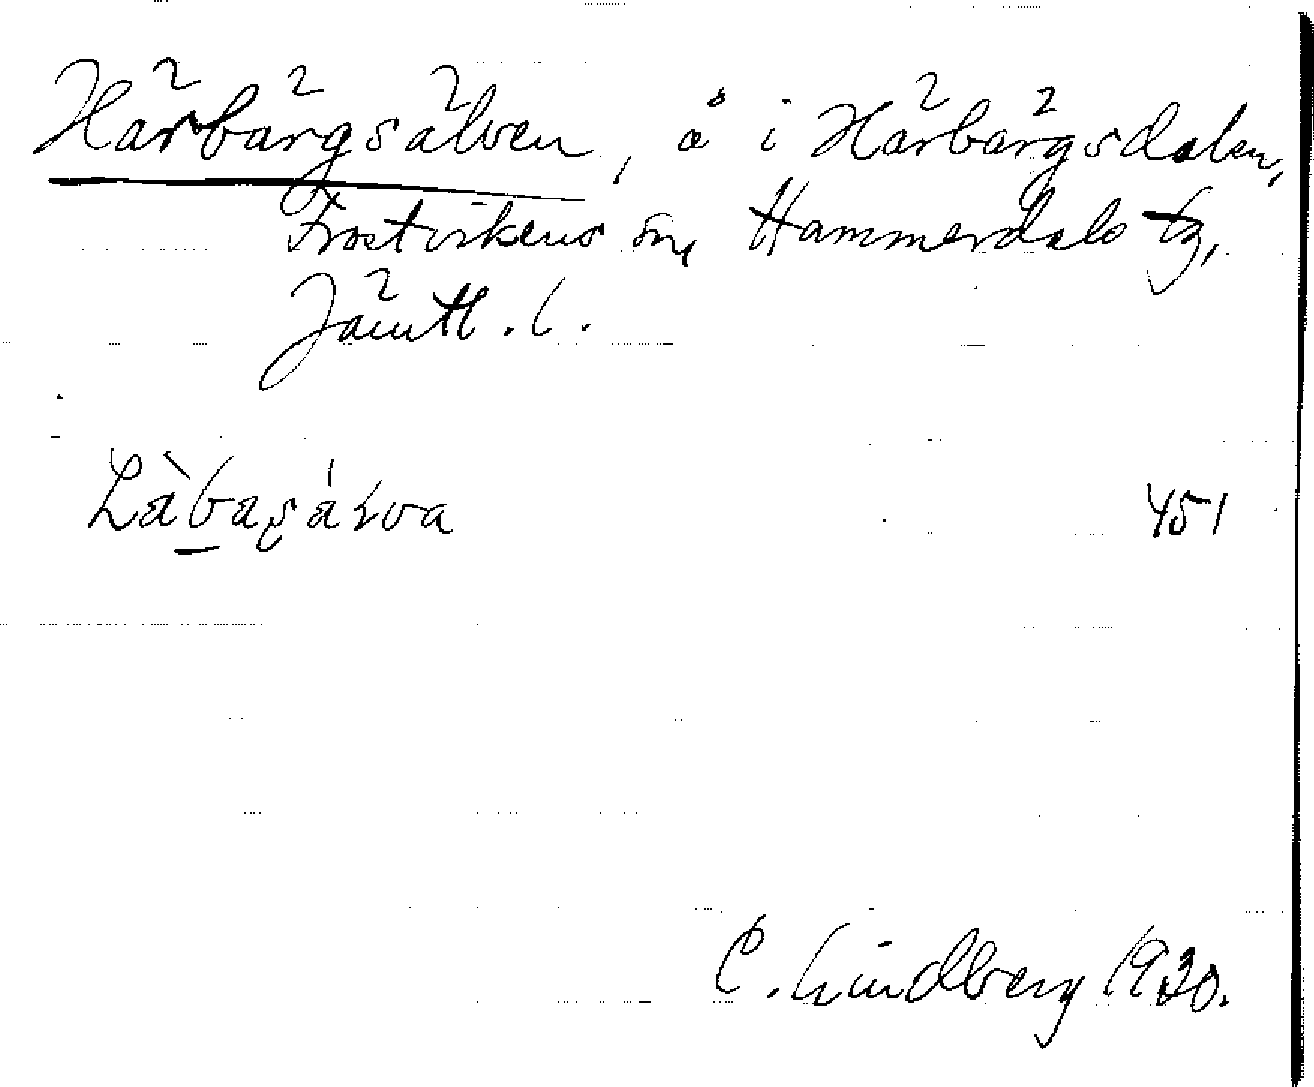 Härbärgsälven, å i Härbärgsdalen,
Frostvikens sn, Hammerdals tg,
Jämtl. l.
451
C. Lindberg 1930.